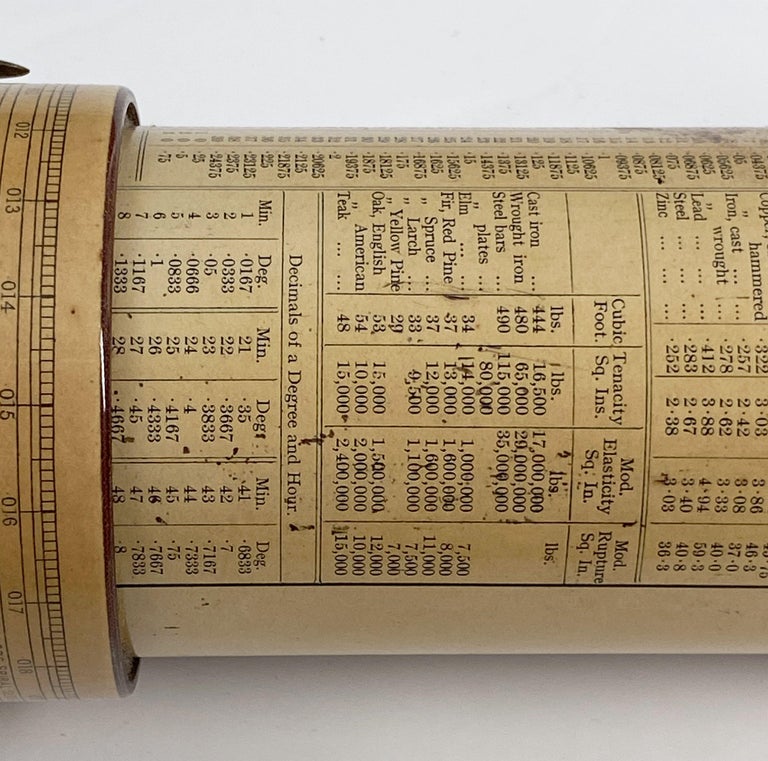 „ hammered ·322 3·03 3·86 46·3
Iron, cast ... ·257 2·42 3·08 37·0
„ wrought ... ·278 2·62 3·33 40·0
Lead ... ... ·412 3·88 4·94 59·3
Steel ... ... ·283 2·67 3·40 40·8
Zinc ... ... ·252 2·38 3·03 36·3
Cubic Foot. Tenacity Sq. Ins. Mod. Elasticity Sq. In. Mod. Rupture Sq. In.
lbs. lbs. lbs. lbs.
Cast iron ... 444 16,500 17,000,000
Wrought iron 480 65,000 29,000,000
Steel bars ... 490 115,000 35,000,000
„ plates 80,000
Elm ... ... 34 14,000 1,000,000 7,500
Fir, Red Pine 37 13,000 1,600,000 8,000
„ Spruce ... 37 12,000 11,000
„ Larch ... 33 9,500 1,100,000 7,500
„ Yellow Pine 29 7,000
Oak, English 53 15,000 1,500,000 12,000
„ American 54 10,000 2,000,000 10,000
Teak ... ... 48 15,000 2,400,000 15,000
Decimals of a Degree and Hour.
Min. Deg. Min. Deg. Min. Deg.
1 ·0167 21 ·35 41 ·6833
2 ·0333 22 ·3667 42 ·7
3 ·05 23 ·3833 43 ·7167
4 ·0666 24 ·4 44 ·7333
5 ·0833 25 ·4167 45 ·75
6 ·1 26 ·4333 46 ·7667
7 ·1167 27 ·45 47 ·7833
8 ·1333 28 ·4667 48 ·8
012
013
014
015
016
017
018